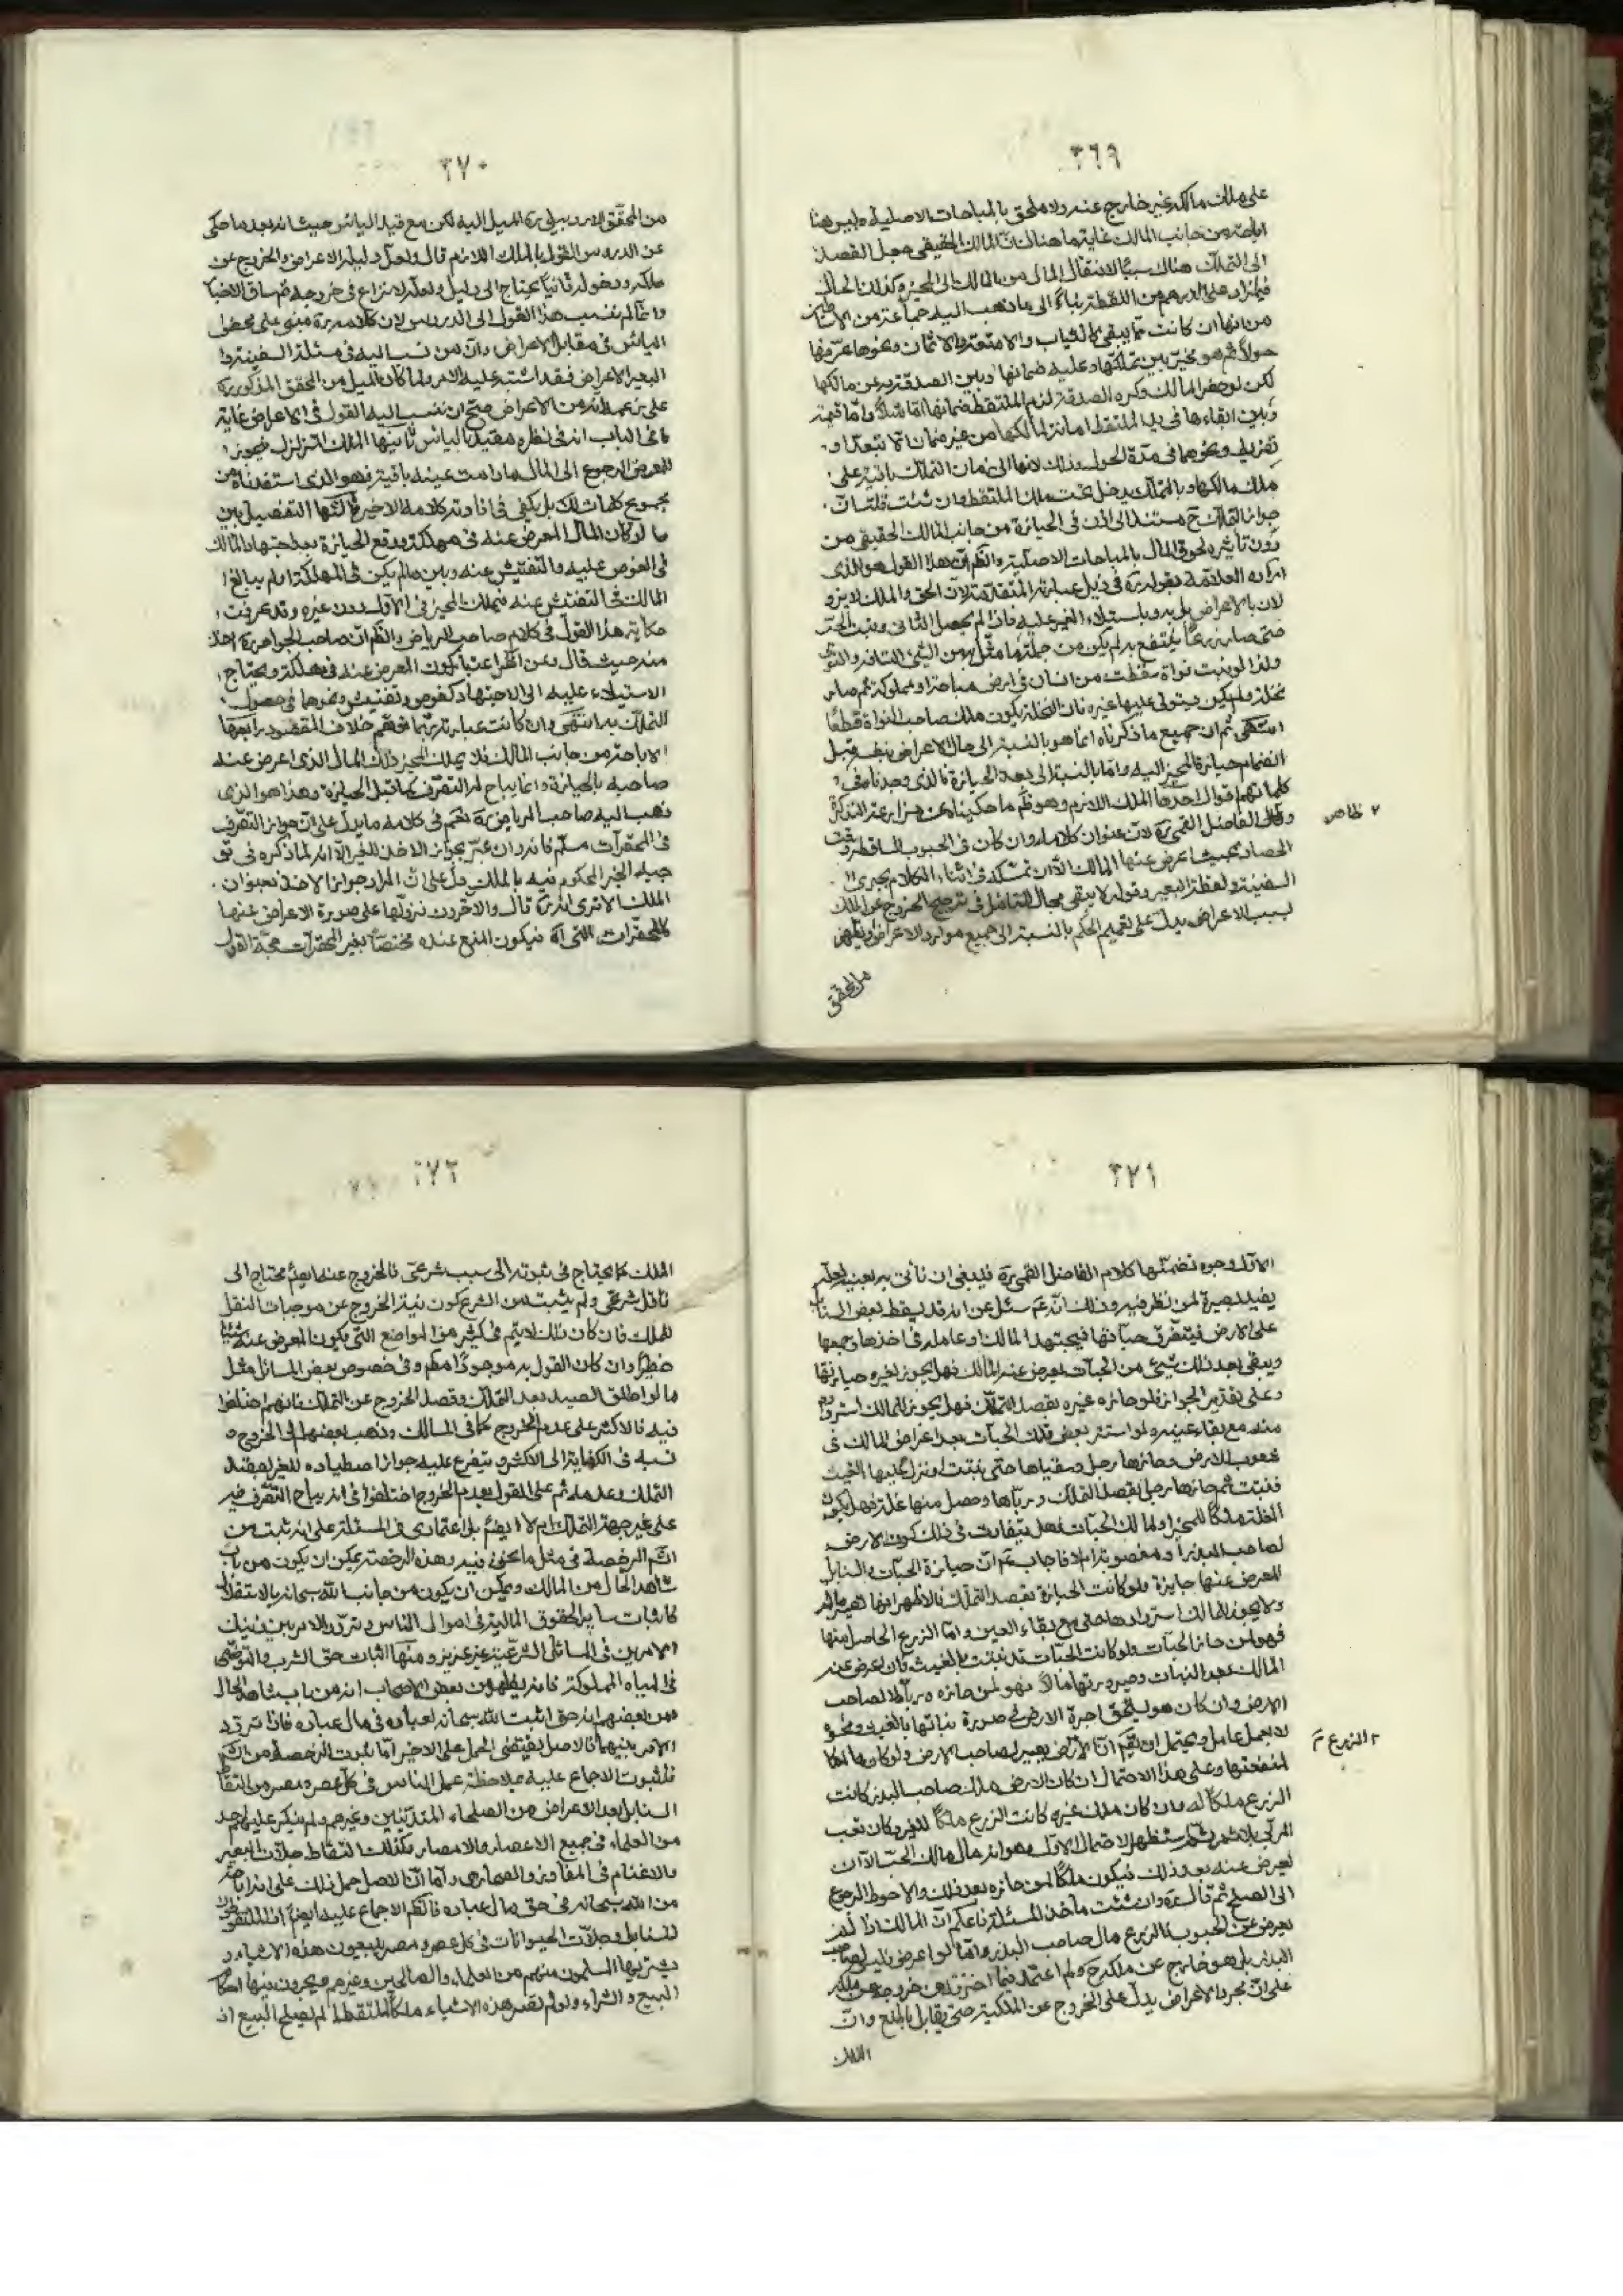 ٣٦٩
على ملك مالكه غير خارج عنه ولا ملحق بالمباحات الاصلية وليس هنا
اباحة من جانب المالك غاية ما هناك ان المالك الحقيقي جعل القصد
الى التملك هناك سببًا لانتقال المال من المالك الى المحيز وكذلك الحال
فيما زاد على الدرهم من اللقطة بناءً الى ما ذهب اليه جماعة من
من انها ان كانت مما يبقى كالثياب والامتعة والاثمان ونحوها عرّفها
حولًا ثم هو مخير بين تملكها وعليه ضمانها وبين الصدقة به عن مالكها
لكن لو حضر المالك وكره الصدقة لزم الملتقط ضمانها اما مثلًا واما قيمة
وبين ابقاءها في يد الملتقط امانة لمالكها من غير ضمان الا بتعد او
تفريط ونحوهما في مدة الحول وذلك لانها الى زمان التملك باقية على
ملك مالكها وبالتملك يدخل تحت ملك الملتقط وان شئت قلت ان
جواز التملك ح مستند الى اذن في الحيازة من جانب المالك الحقيقي من
دون تأثيره لحوق المال بالمباحات الاصلية والظم ان هذا القول هو الذي
اراده العلامة بقوله ره في ذيل عبارته المتقدمة لان الحق والملك لا يزول
لان بالاعراض بل به وباستيلاء الغير عليه فاذا لم يحصل الثاني ونبت الحب
حتى صار زرعًا ينتفع به لم يكن من جملة ما مثّل به من الشئ التافه والنوى
ولذا لو نبت نواة سقطت من انسان في ارض مباحة او مملوكة ثم صار
نخلة ولم يكن يستولى عليها غيره فان النخلة يكون ملك صاحب النواة قطعًا
انتهى ثم ان جميع ما ذكرناه انما هو بالنسبة الى حال الاعراض بنفسه قبل
انضمام حيازة المحيز اليه واما بالنسبة الى بعد الحيازة فالذي وجدنا في
كلماتهم اقوال احدها الملك اللازم وهو ظم ما حكيناه عن عبارة التذكرة
وقال الفاضل القمي ره لان عنوان كلامه وان كان في الحبوب الساقطة وقت
٢ ظاهر
الحصاد بحيث اعرض عنها المالك الا ان تمسكه في اثناء الكلام بخبرى
السفينة ولقطة البعير وقوله لا يبقى مجال للتامل في ترجيح الخروج عن الملك
بسبب الاعراض يدل على تعميم الحكم بالنسبة الى جميع موارد الاعراض ويظهر
من المحقق
٣٧٠
من المحقق الاردبيلي ره الميل اليه لكن مع قيد اليأس حيث انه بعد ما حكى
عن الدروس القول بالملك اللازم قال ولعل دليله الاعراض والخروج عن
ملكه ودخوله ثانيًا يحتاج الى دليل ولعله لا نزاع في خروجه ثم ساق الاخبار
وانما لم ننسب هذا القول الى الدروس لان كلامه ره مبني على
اليأس في مقابل الاعراض وان من نسب اليه في مسئلة السفينة
البعير الاعراض فقد اشتبه عليه الامر ولما كان الميل من المحقق المذكور ره
على زعمه انه من الاعراض صح ان ننسب اليه القول في الاعراض غاية
ما في الباب انه في نظره مقيد باليأس ثانيها الملك المتزلزل فيجوز
للمعرض الرجوع الى المال ما دامت عينه باقية وهو الذي استفدناه من
مجموع كلمات لك بل يكفي في افادته كلامه الاخير ثالثها التفصيل بين
ما لو كان المال المعرض عنه في مهلكة ووقع الحيازة بعد اجتهاد المالك
في الغوص عليه والتفتيش عنه وبين ما لم يكن في المهلكة او لم يبالغ
المالك في التفتيش عنه فيملك المحيز في الاول دون غيره وقد عرفت
حكاية هذا القول في كلام صاحب الرياض والظم ان صاحب الجواهر ره اخذ
منه حيث قال ومن اظهر اعتبار كون المعرض عنه في مهلكة ويحتاج
الاستيلاء عليه الى الاجتهاد كغوص وتفتيش ونحوهما في حصول
التملك به انتهى وان كانت عبارته ربما توهم خلاف المقصود رابعها
الاباحة من جانب المالك فلا يملك المحيز ذلك المال الذي اعرض عنه
صاحبه بالحيازة وانما يباح له التصرف كما قبل الحيازة وهذا هو الذي
ذهب اليه صاحب الرياض ره نعم في كلامه ما يدل على ان جواز التصرف
في المحقرات مسلّم فانه وان عبّر بجواز الاخذ للغير الا انه لما ذكره في
جملة الخبر المحكوم فيه بالملك دل على ان المراد جواز الاخذ بعنوان
الملك الا ترى انه ره قال والاخرون نزولها على صورة الاعراض عنها
كالمحقرات التي اه فيكون المنع عنده مختصًا بغير المحقرات حجة القول
٣٧١
الاول وجوه تضمنها كلام الفاضل القمي ره فينبغي ان نأتي به بعينه لعله
يفيد بصيرة لمن نظر فيه وذلك انه ره سئل عن انه قد يسقط بعض السنابل
على الارض فيتفرق حباتها فيجتهد المالك او عامله في اخذها وجمعها
ويبقى بعد ذلك شيئ من الحبات يعرض عنه المالك فهل يجوز لغيره حيازتها
وعلى تقدير الجواز فلو حازه غيره بقصد التملك فهل يجوز للمالك استرداده
منه مع بقاء عينه ولو استتر بعض تلك الحبات بعد اعراض المالك في
شعوب الارض وحازها رجل وسقياها حتى نبتت او نزل عليها الغيث
فنبتت ثم حازها رجل بقصد التملك ورباها وحصل منها غلة فهل يكون
الغلة ملكًا للمحيز او لمالك الحبات وهل يتفاوت في ذلك كون الارض
لصاحب البذر او مغصوبة ام لا فاجاب بعم ان حيازة الحبات والسنابل
المعرض عنها جايزة ولو كانت الحيازة بقصد التملك فالاظهر انها تصير ماله
ولا يجوز للمالك استردادها حتى مع بقاء العين واما الزرع الحاصل منها
فهو لمن حاز الحبات ولو كانت الحبات قد نبتت بالغيث فان اعرض عنه
المالك بعد النبات وصيرورتها مالًا فهو لمن حازه ورباه لا لصاحب
الارض وان كان هو يستحق اجرة الارض في صورة نباتها بالغيث ونحوه
لا بعمل عامل ويحتمل ان يقم ان الارض يصير لصاحب الارض ولو كان مالكا
٢ الزرع م
لمنفعتها وعلى هذا الاحتمال ان كان الارض ملك صاحب البذر كانت
الزرع ملكًا له وان كان ملك غيره كانت الزرع ملكًا للغير وكان تعب
المربي بلا ثمر ثم استظهر الاحتمال الاول وهو انه مال مالك الحب الا ان
يعرض عنه بعد ذلك فيكون ملكًا لمن حازه بعد ذلك والاحوط الرجوع
الى الصلح ثم قال ره وان شئت مأخذ المسئلة فاعلم ان المالك اذا لم
يعرض عن الحبوب فالزرع مال صاحب البذر واما لو اعرض فليس لصاحب
البذر بل هو خارج عن ملكه ح ولم اعتمد فيما اخترته من خروجه عن ملكه
على ان مجرد الاعراض يدل على الخروج عن الملكية حتى يقابل بالمنع وان
الملك
٣٧٢
الملك كما يحتاج في ثبوته الى سبب شرعي فالخروج عنه ايضم محتاج الى
ناقل شرعي ولم يثبت من الشرع كون نية الخروج عن موجبات النقل
للملك فان كان ذلك لا يتم في كثير من المواضع التي يكون المعرض عنه شيئا
خطيرًا وان كان القول به موجودًا منهم وفي خصوص بعض المسائل مثل
ما لو اطلق الصيد بعد التملك وقصد الخروج عن التملك فانهم اختلفوا
فيه فالاكثر على عدم الخروج كما في المسالك وذهب بعضهم الى الخروج و
نسبه في الكفاية الى الاكثر ويتفرع عليه جواز اصطياده للغير بقصد
التملك وعدمه ثم على القول بعدم الخروج اختلفوا في انه يباح التصرف فيه
على غير جهة التملك ام لا ايضم بل اعتمادي في المسئلة على انه ثبت من
الشرع الرخصة في مثل ما نحن فيه وهذه الرخصة يمكن ان يكون من باب
شاهد الحال من المالك ويمكن ان يكون من جانب الله سبحانه بالاستقلال
كاثبات ساير الحقوق المالية في اموال الناس وتردد الامر بين ذينك
الامرين في المسائل الشرعية غير عزيز ومنها اثبات حق الشرب والتوضي
في المياه المملوكة فانه يظهر من بعض الاصحاب انه من باب شاهد الحال
ومن بعضهم انه حق اثبت الله سبحانه لعباده في مال عباده فاذا تردد
الامر بينهما فالاصل يقتضي الحمل على الاخير اما ثبوت الرخصة من الشرع
فلثبوت الاجماع عليه بملاحظة عمل الناس في كل عصر ومصر من التقاط
السنابل بعد الاعراض من الصلحاء المتدينين وغيرهم ولم ينكر عليهم احد
من العلماء في جميع الاعصار والامصار وكذلك التقاط جلات البعير
والاغنام في المفاوز والصحاري واما ان الاصل حمل ذلك على انه اباحة
من الله سبحانه في حق مال عباده فالظم الاجماع عليه ايضم اذ الملتقطون
للسنابل وجلات الحيوانات في كل عصر ومصر يبيعون هذه الاشياء و
يشتريها المسلمون منهم من العلماء والصالحين وغيرهم ويجرون فيها احكام
البيع والشراء ولو لم تصر هذه الاشياء ملكًا للملتقط لم يصلح البيع اذ